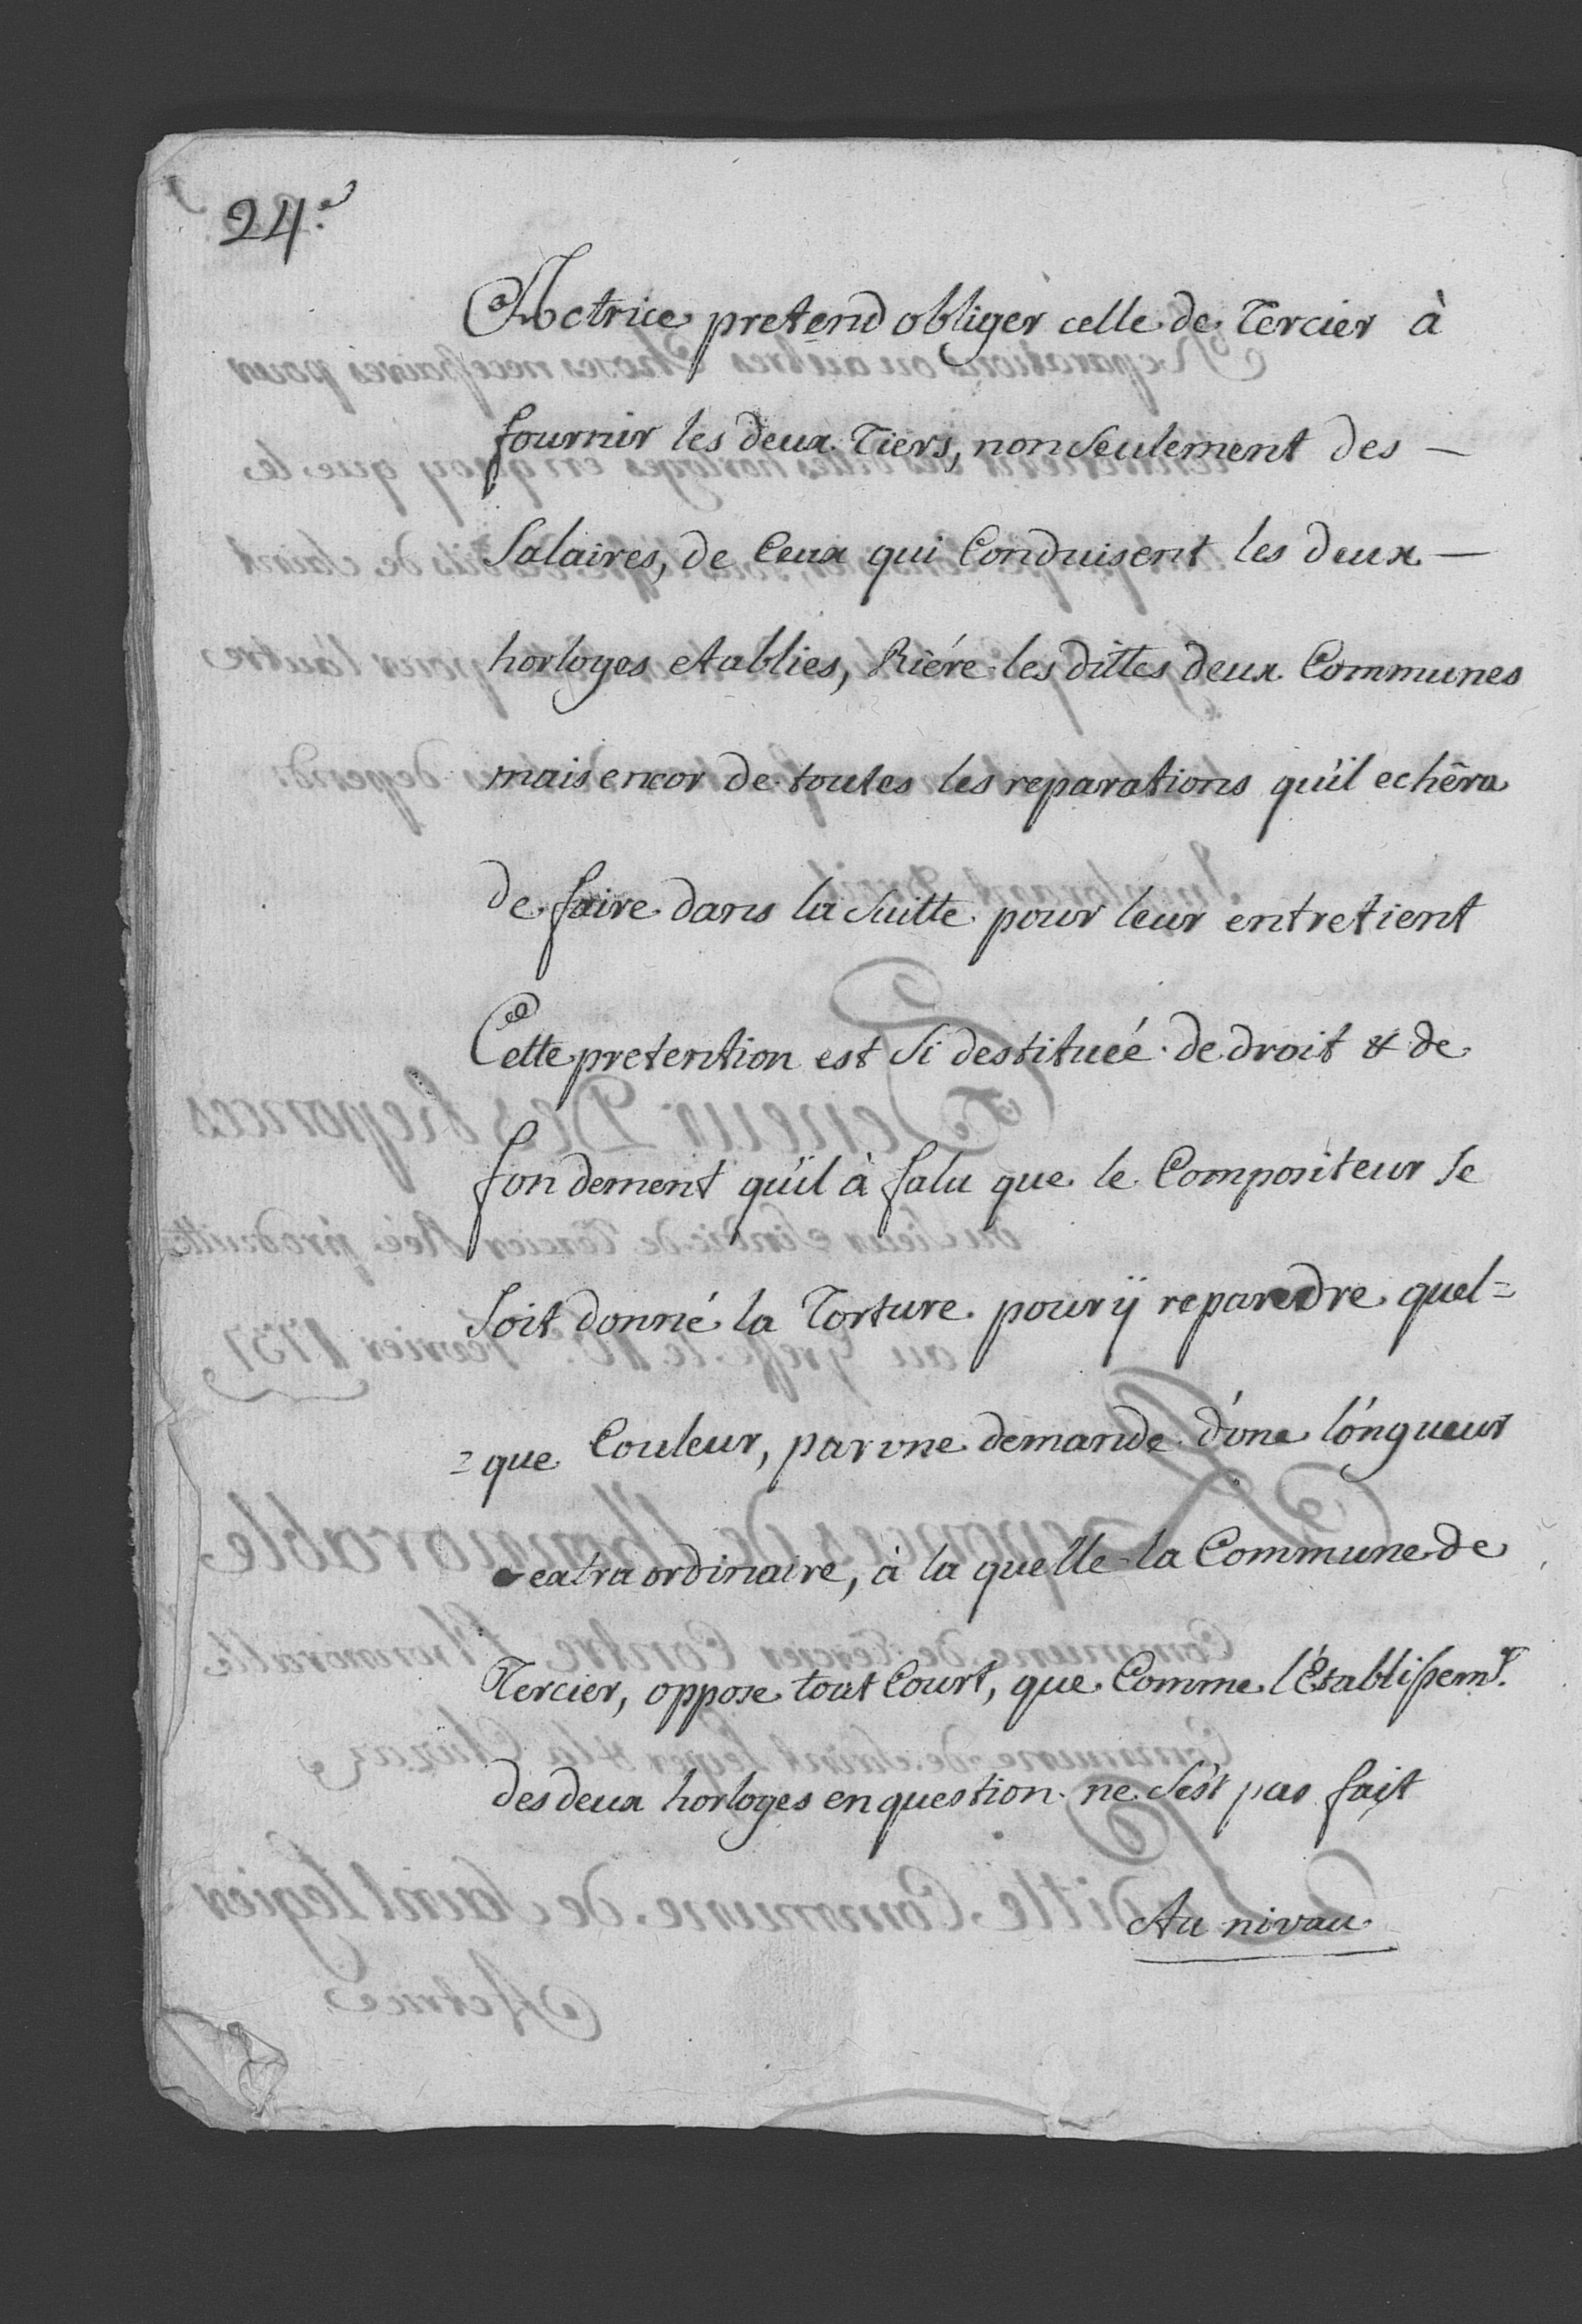 24.e
Actrice pretend obliger celle de Tercier à
fournir les deux Tiers, non seulement des —
Salaires, de Ceux qui Conduisent les deux —
horloges etablies, Riére les dittes deux Communes
mais encor de toutes les reparations qu'il echêra
de faire dans la Suitte pour leur entretient
Cette pretention est Si destitueé de droit & de
fondement qu'il à falu que le Compositeur Se
Soit donné la Torture pour ÿ reparedre quel=
=que Couleur, par une demande d'une longueur
extraordinaire, à la quelle la Commune de
Tercier, oppose tout Court, que Comme l'Etablissemt.
des deux horloges en question ne S'est pas fait
Au nivau